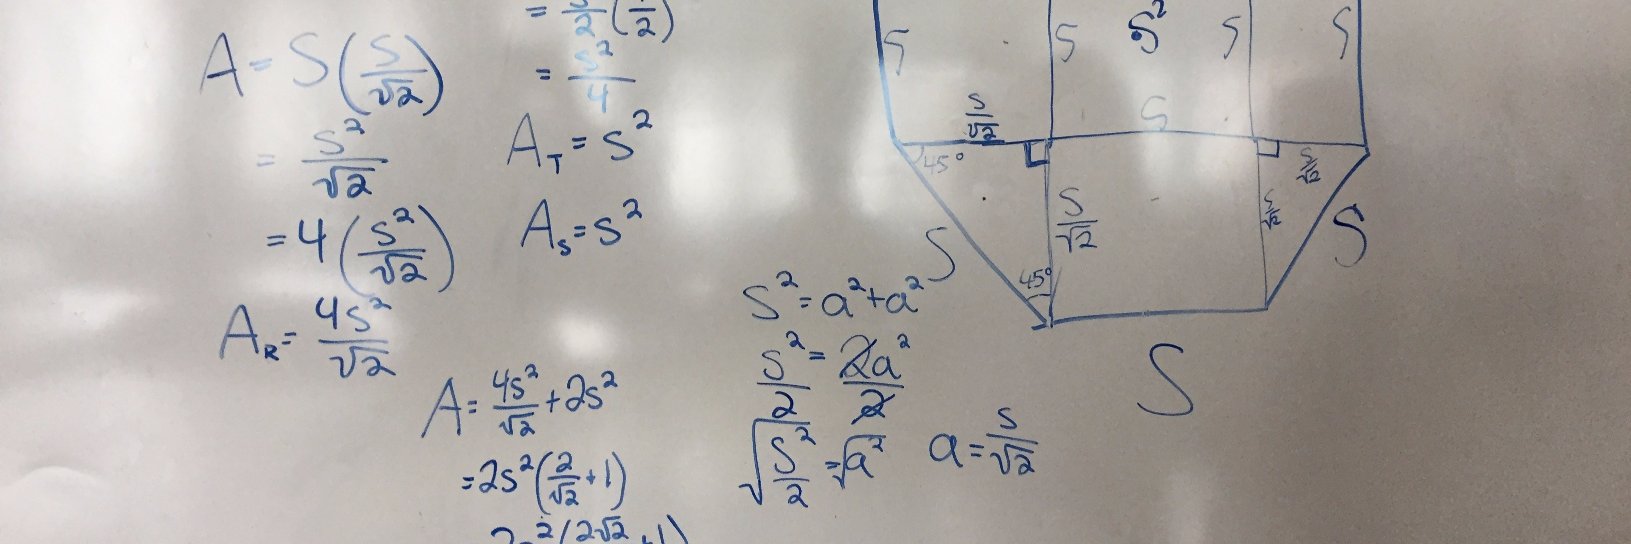 A = S(S/√2)
= S²/√2
= 4(S²/√2)
A_R = 4S²/√2
= S²/4
A_T = S²
A_S = S²
A = 4S²/√2 + 2S²
= 2S²(2/√2 + 1)
S² = a² + a²
S²/2 = 2a²/2
√(S²/2) = √a²
a = S/√2
S
S
S²
S
S
S/√2
S
45°
S/√2
S/√2
S/√2
45°
S
S
S